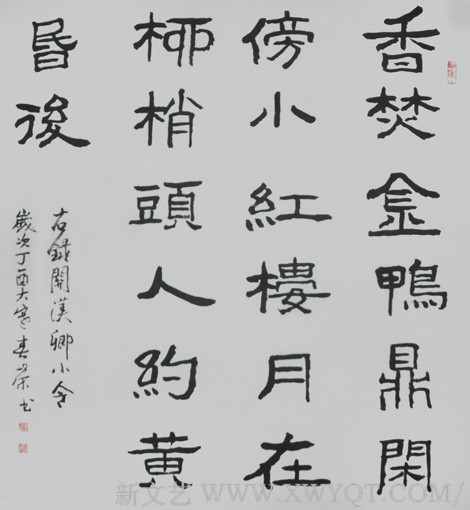 香焚金鴨鼎閑
傍小紅樓月在
柳梢頭人約黃
昬後
右録關漢卿小令
歲次丁酉大寒春榮书
新文艺 WWW.XWYQT.COM/